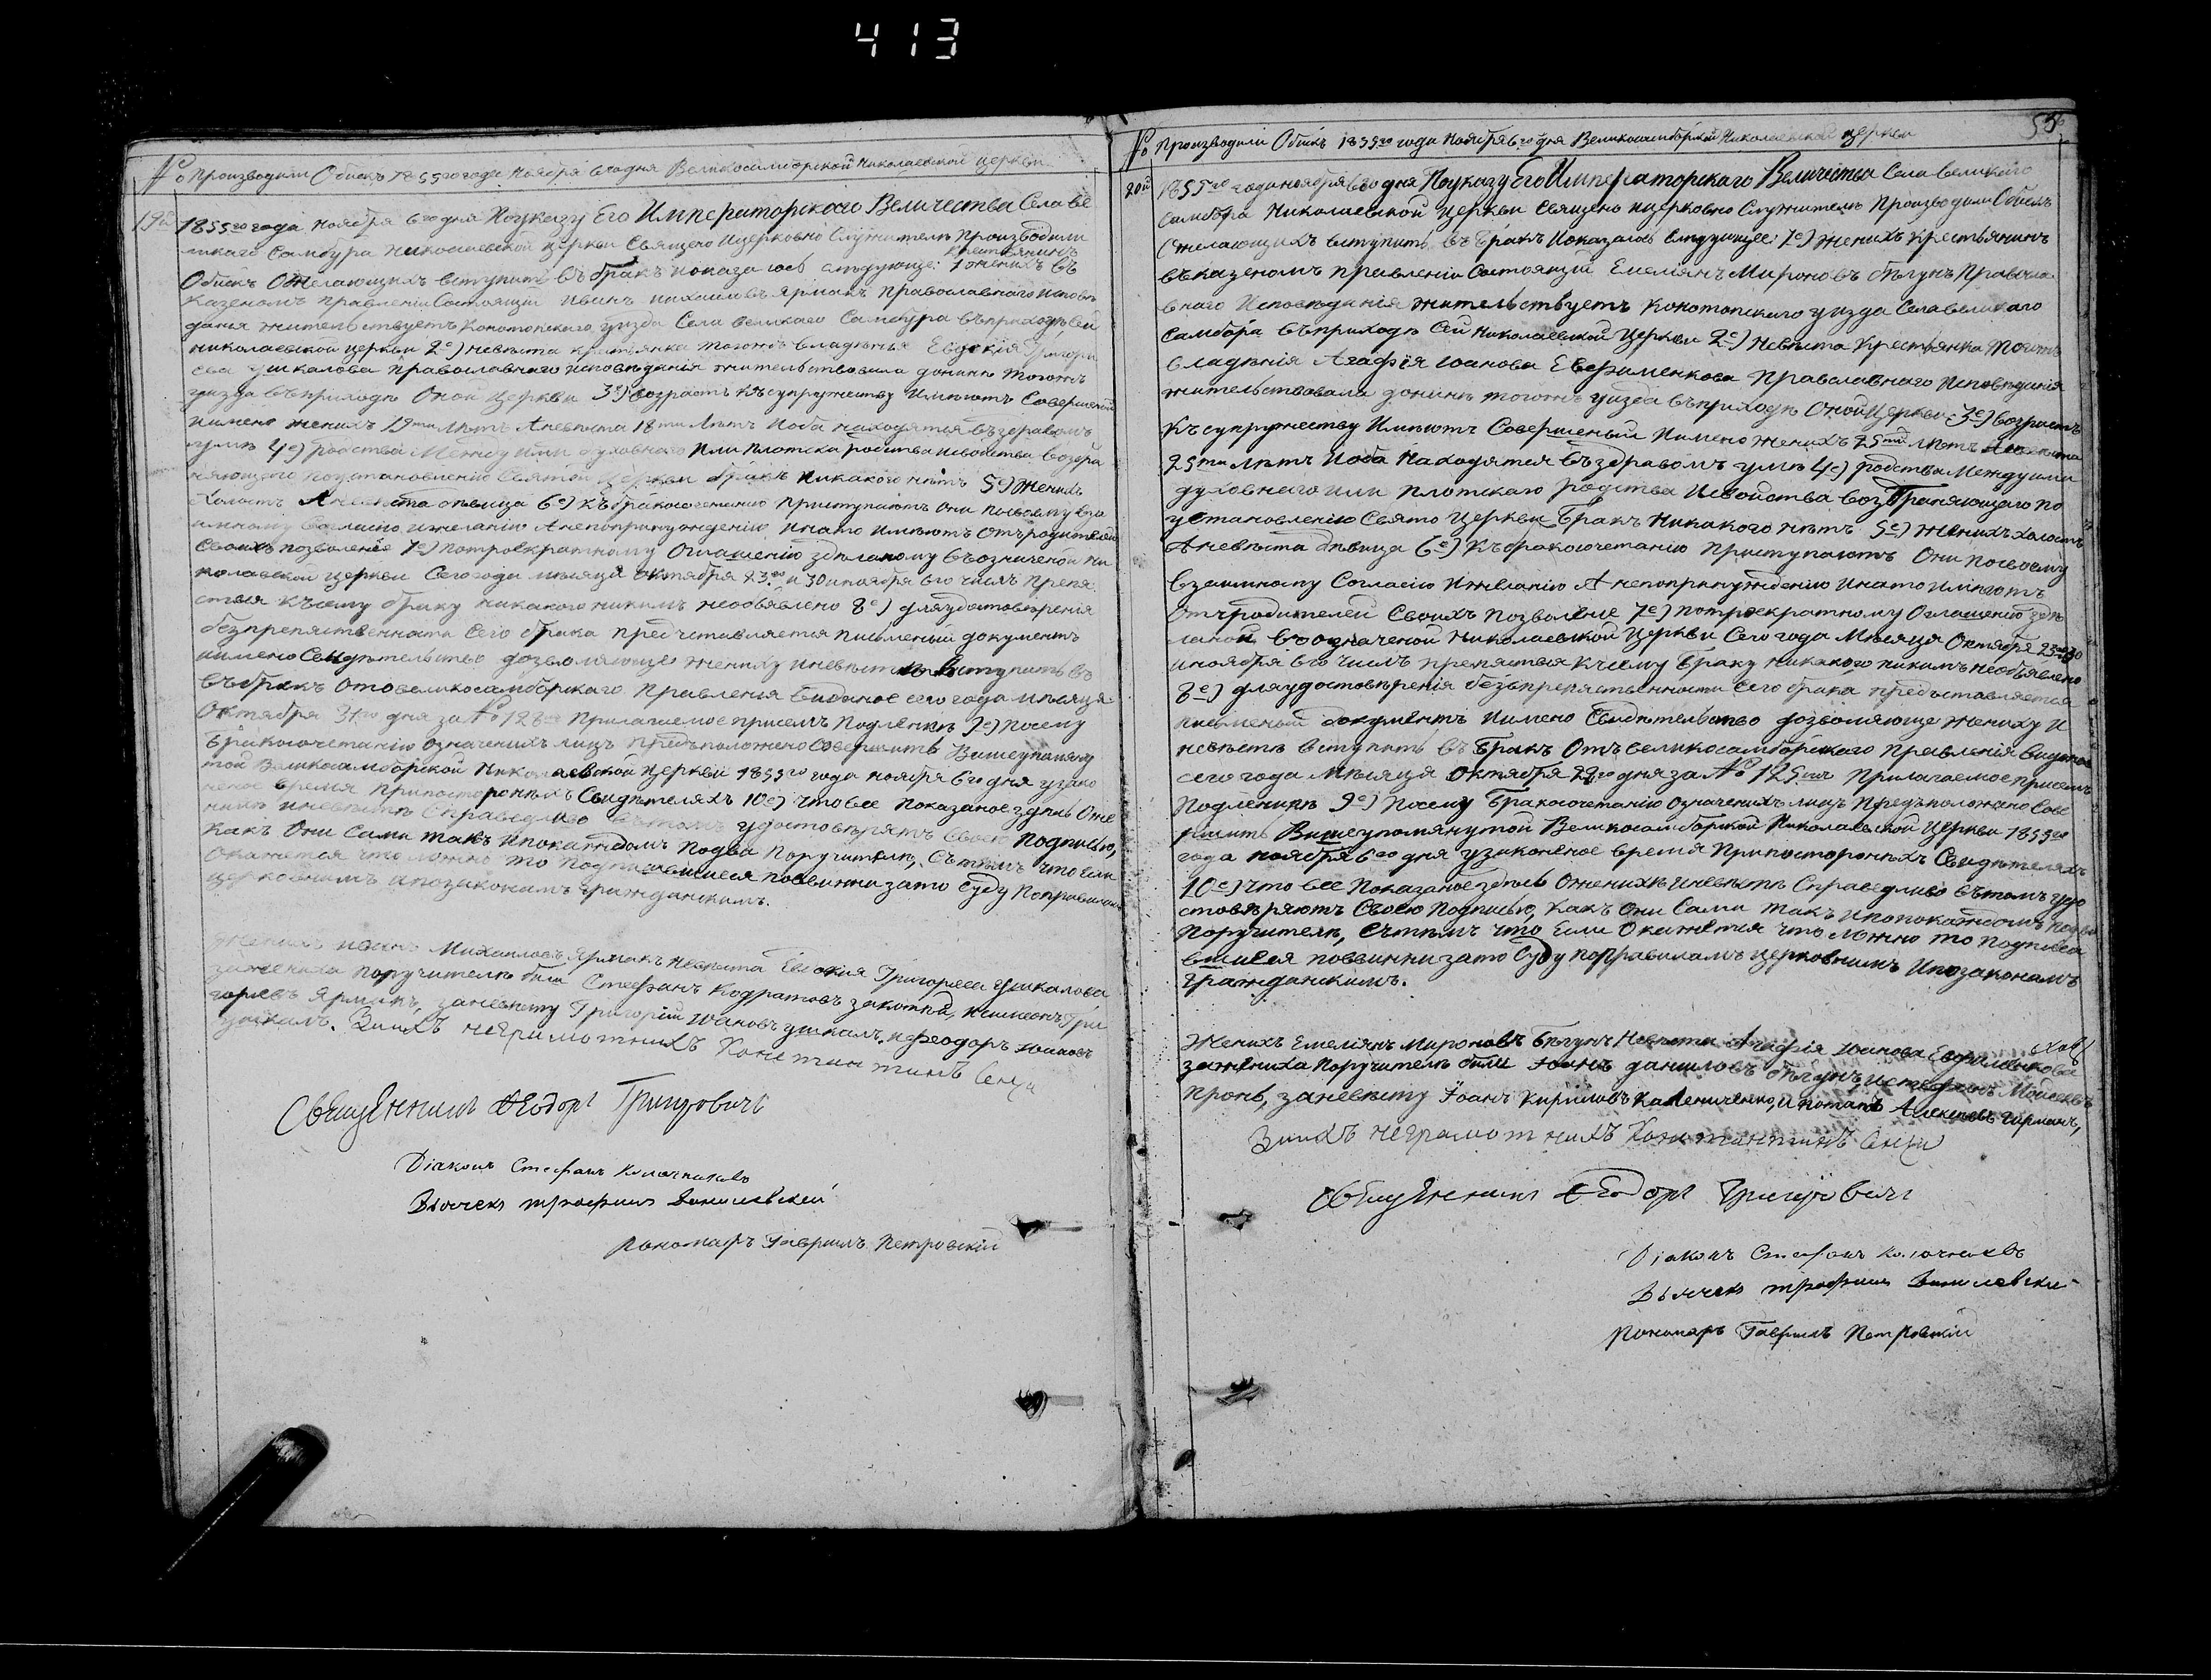 413
№ Производили Обискъ 1855го года Ноября 6го дня Великосамборской Николаевской церкви
19й 1855го года Ноября 6го дня По указу Его Императорского Величества Села ве
ликаго Самбура Николаевской церкви Священо и церковно Служители Производили
крестьянинъ
Обискъ О желающихъ вступить въ бракъ и оказалось следующе: 1 женихъ въ
казеномъ правленіи Состоящій Иванъ Михаиловъ Ярмакъ Православнаго Исповѣ
данія жительствуетъ Конотопскаго уизда Села великаго Самбура въ приходѣ Сей
Николаевской церкви 2е) невѣста крестянка тогожъ владѣнья Евдокія Григори
ева Ушкалова православнаго исповѣданія жительствовала донинѣ тогожъ
уизда въ приходѣ Оной Церкви 3е) возрастъ къ супружеству Имѣютъ Совершеной
Имено женихъ 19ти Лѣтъ А невѣста 18ти Лѣтъ И оба находятся въ здравомъ
умѣ 4е) родства Между ими духовнаго Или плотска родства и свойства возбра
няющего по установленію Святой Церкви бракъ Никакого нѣтъ 5е) Женихъ
Холостъ А невѣста дѣвица 6е) Къ бракосочетанію Приступаютъ Они по своему вза
имному Согласію и желанію А непопринужденію и на то Имѣютъ Отъ родителей
Своихъ позволеніе 7е) По троекратному Оглашенію зделаному въ означеной Ни
колаевской церкви Сего года мѣсяця Октября 23го и 30 и ноября 6го числъ препя
ствія къ сему браку никакого никимъ необявлено 8е) для удостовѣренія
безпрепяственности Сего брака предъставляется письменый документъ
имено Свидѣтельство дозволяюще жениху и невѣстѣ вступить въ
въ бракъ Ото великосамборскаго Правленія Виданое сего года мѣсяця
Октября 31го дня за № 128 Прилагаемое присемъ Подленикъ 9е) Посему
Бракосочетанію означенихъ лицъ предъположено Совершить Вишеупомяну
той Великосамборской Николаевской церкви 1855го года ноября 6го дня узако
неное время При посторонѣхъ Свидѣтеляхъ 10е) что все показаное здѣсь О же
нихѣ и невѣстѣ Справедливо въ томъ удостовѣрятъ Своею Подписью,
какъ Они Сами такъ и по каждомъ по два Поручители, Съ тѣмъ что Если
Окажется что ложно то Подписавшиеся повинни за то Суду По правиламъ
церковнимъ и по законамъ гражданскимъ.
Женихъ Иванъ Михаиловъ Ярмакъ Невѣста Евдокия Григорьева Ушкалова
за жениха поручители били Стефанъ Кодратовъ закотній, и Симеонъ Гри
горьевъ Ярмакъ, за невѣсту Григорій Ивановъ ушкалъ, и Феодоръ Ивановъ
ушкалъ. За нихъ неграмотнихъ Констинтинъ Сенци
Священникъ Феодоръ Григоровичъ
Діаконъ Стефанъ Колочниковъ
Дьячекъ трофимъ Данилевский
Пономаръ Гавриилъ Петровскій
55
№ Производили Обискъ 1855го года Ноября 6го дня Великосамборской Николаевской церкви
20й 1855го года ноября 6го дня По указу Его Императорскаго Величества Села великаго
Самбура Николаевской церкви Священо и церковно Служители Производили Обискъ
О желающихъ вступить въ бракъ И оказалось Следующее: 1е) женихъ крестьянинъ
въ казеномъ правленіи Состоящій Емеліянъ Мироновъ бѣгунъ Правосла
внаго Исповѣданія жительствуетъ Конотопскаго уизда Села великаго
Самбора въ приходѣ Сей Николаевской Церкви 2е) Невѣста Крестьянка Тогожъ
владѣнія Агафія Іоанова Евефименкова Православнаго Исповѣданія
жительствовала донинѣ тогожъ уизда въ приходѣ Оной Церкви 3е) возрастъ
Къ супружеству Имѣютъ Совершеный Имено женихъ 25ти лѣтъ А невѣста
25ти Лѣтъ И оба Находятся въ здравомъ умѣ 4е) родства Между ими
духовнаго или плотскаго родства И свойства возбраняющаго по
установленію Свято Церкви Бракъ Никакого нѣтъ 5е) женихъ холостъ
А невѣста дѣвица 6е) Къ бракосочетанію приступаютъ Они по своему
взаимному Согласію И желанію А непопринужденію И на то имѣютъ
Отъ родителей Своихъ Позволеніе 7е) по троекратному Оглашенію здѣ
ланой въ означеной Николаевской Церкви Сего года Мѣсяця Октября 23го 30
и ноября 6го числъ препяствия к сему браку никакого никимъ необявлено
8е) для удостовѣренія безъпрепяственности Сего брака предъставляется
писменый документъ имено Свидѣтельство дозволяюще жениху и
невѣстѣ вступить въ бракъ Отъ великосамборскаго Правленія виданое
сего года Мѣсяця Октября 29го дня за № 125 Прилагаемое присемъ
Подленикъ 9е) Посему Бракосочетанію означенихъ лицъ Предъположено Сове
ршить Вишеупомянутой Великосамборской Николаевской Церкви 1855го
года ноября 6го дня узаконеное время При посторонѣхъ Свидѣтеляхъ
10е) что все Показаное здѣсь О женихѣ и невѣстѣ Справедливо въ томъ удо
стовѣряютъ Своею Подписью, какъ Они Сами такъ и по каждомъ по два
Поручители, Съ тѣмъ что Если Окажется что Ложно то Подписа
вшиеся повинни за то Суду по правиламъ церковнимъ И по законамъ
гражданскимъ.
Женихъ Емеліянъ Мироновъ Бѣгунъ Невѣста Агафія Іоанова Евфименкова
за жениха Поручители били Іоанъ даниловъ бѣгунъ и Стефанъ Моисеевъ
Пронь, за невѣсту Іоанъ Кириловъ Калениченко, и Потапъ Алексѣевъ Горманъ,
За нихъ неграмотнихъ Констинтинъ Сенци
Священникъ Феодоръ Григоровичъ
Діаконъ Стефанъ Колочниковъ
Дьячекъ трофимъ Данилевски
Пономаръ Гавриилъ Петровскій